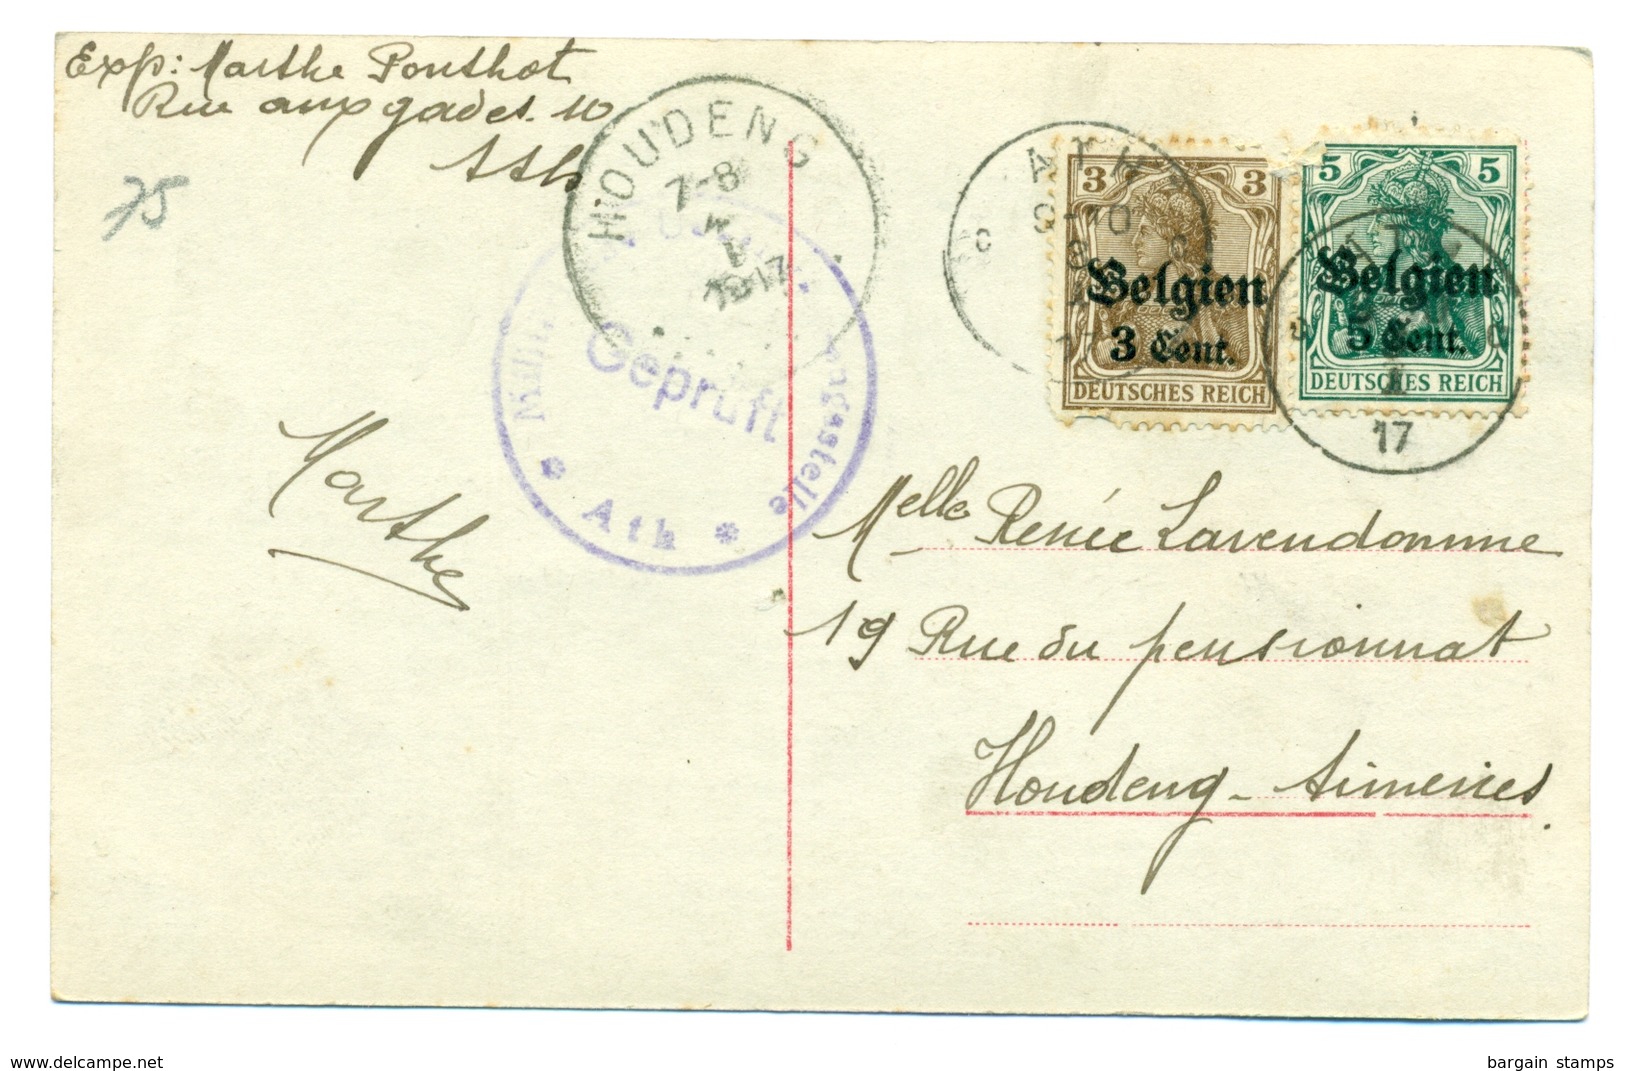 Exp: Marthe Ponthot
Rue aux gades. 10
Ath
75
HOUDENG
7-8
1917
Geprüft
* Ath *
ATH
9-10
3 3
Belgien
3 Cent.
DEUTSCHES REICH
5 5
Belgien
5 Cent.
DEUTSCHES REICH
17
Marthe
Melle Renée Lavendomme
19 Rue du pensionnat
Houdeng-Aimeries.
www.delcampe.net
bargain stamps